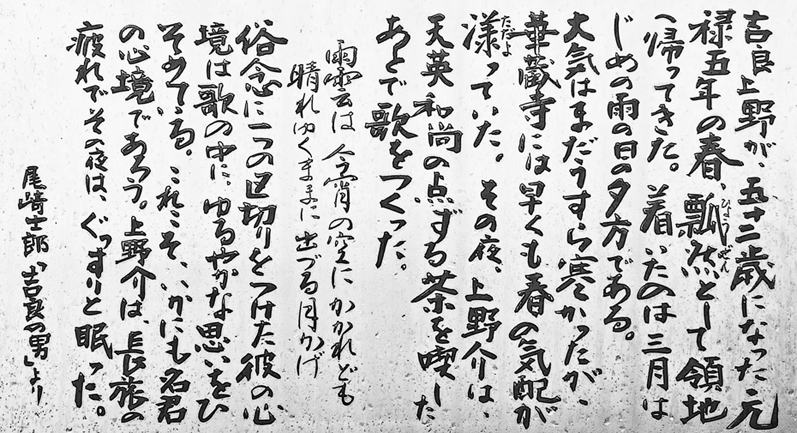 吉良上野が、五十二歳になった元
禄五年の春、瓢然として領地
へ帰ってきた。着いたのは三月は
じめの雨の日の夕方である。
大気はまだうすら寒かったが、
華蔵寺には早くも春の気配が
漾っていた。その夜、上野介は、
天英和尚の点ずる茶を喫した
あとで歌をつくった。
雨雲は今宵の空にかかれども
晴れゆくままに出づる月かげ
俗念に一つの区切りをつけた彼の心
境は歌の中に、ゆるやかな思いをひ
そめている。これこそ、いかにも名君
の心境であろう。上野介は、長旅の
疲れでその夜は、ぐっすりと眠った。
尾崎士郎「吉良の男」より